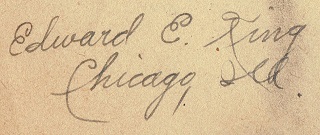 Edward E. King
Chicago, Ill.